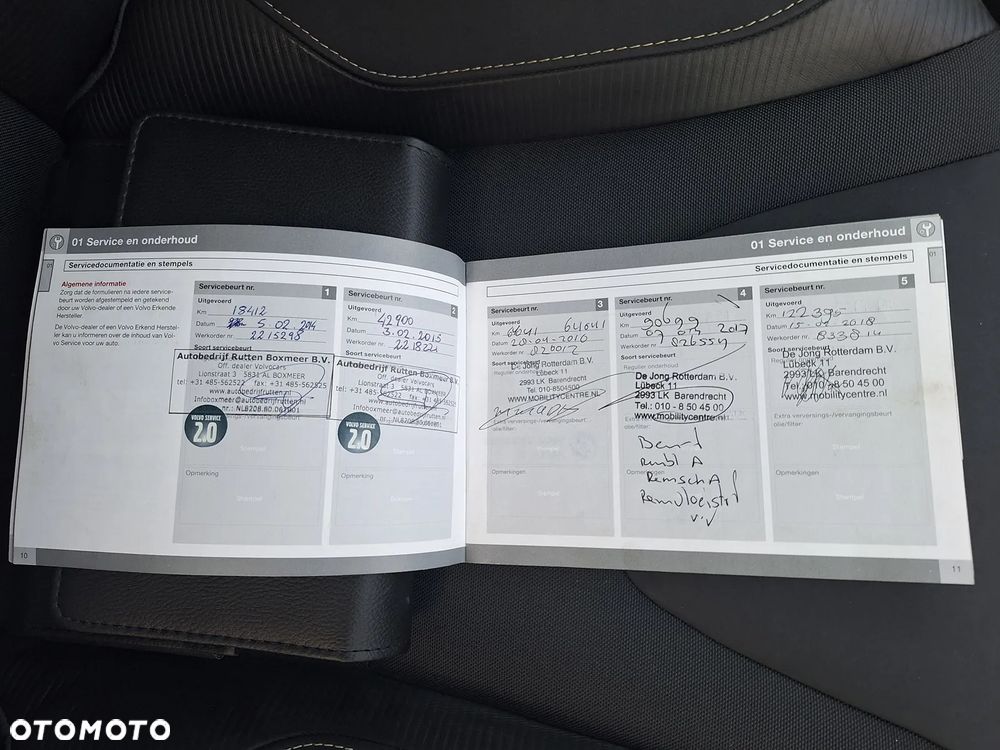 01 Service en onderhoud
Servicedocumentatie en stempels
Algemene informatie
Zorg dat de formulieren na iedere service-
beurt worden afgestempeld en getekend
door uw Volvo-dealer of een Volvo Erkende
Hersteller.
De Volvo-dealer of een Volvo Erkend Herstel-
ler kan u informeren over de inhoud van Vol-
vo Service voor uw auto.
Servicebeurt nr. 1
Uitgevoerd
Km 18412
Datum 5.02.2014
Werkorder nr. 2215298
Soort servicebeurt
Autobedrijf Rutten Boxmeer B.V.
Off. dealer Volvocars
Lionstraat 3 5831 AL BOXMEER
tel: +31 485-562522 fax: +31 485-562525
www.autobedrijfrutten.nl
Infoboxmeer@autobedrijfrutten.nl
VOLVO SERVICE
2.0
Stempel
Opmerking
Stempel
10
Servicebeurt nr. 2
Uitgevoerd
Km 42900
Datum 3.02.2015
Werkorder nr.
Soort servicebeurt
Autobedrijf Rutten Boxmeer B.V.
Off. dealer Volvocars
Lionstraat 3 5831 AL BOXMEER
www.autobedrijfrutten.nl
Infoboxmeer@autobedrijfrutten.nl
VOLVO SERVICE
2.0
Stempel
Opmerking
01 Service en onderhoud
Servicedocumentatie en stempels
Servicebeurt nr. 3
Uitgevoerd
Km 64041
Datum
Werkorder nr. 820017
Soort servicebeurt
De Jong Rotterdam B.V.
Lübeck 11
2993 LK Barendrecht
TEL: 010-8504500
WWW.MOBILITYCENTRE.NL
Extra verversings-/vervangingsbeurt
olie/filter:
Opmerkingen
Stempel
Servicebeurt nr. 4
Uitgevoerd
Km 90699
Datum 2017
Werkorder nr. 826554
Soort servicebeurt
Regulier onderhoud
De Jong Rotterdam B.V.
Lübeck 11
2993 LK Barendrecht
Tel.: 010 - 8 50 45 00
www.mobilitycentre.nl
olie/filter:
Opmerkingen
RemschA
Remvloeistof
Servicebeurt nr. 5
Uitgevoerd
Km 122395
Datum 2018
Werkorder nr. 833814
Soort servicebeurt
De Jong Rotterdam B.V.
Lübeck 11
2993 LK Barendrecht
Tel.: 010 - 8 50 45 00
www.mobilitycentre.nl
Extra verversings-/vervangingsbeurt
olie/filter:
Stempel
Opmerkingen
Stempel
11
OTOMOTO